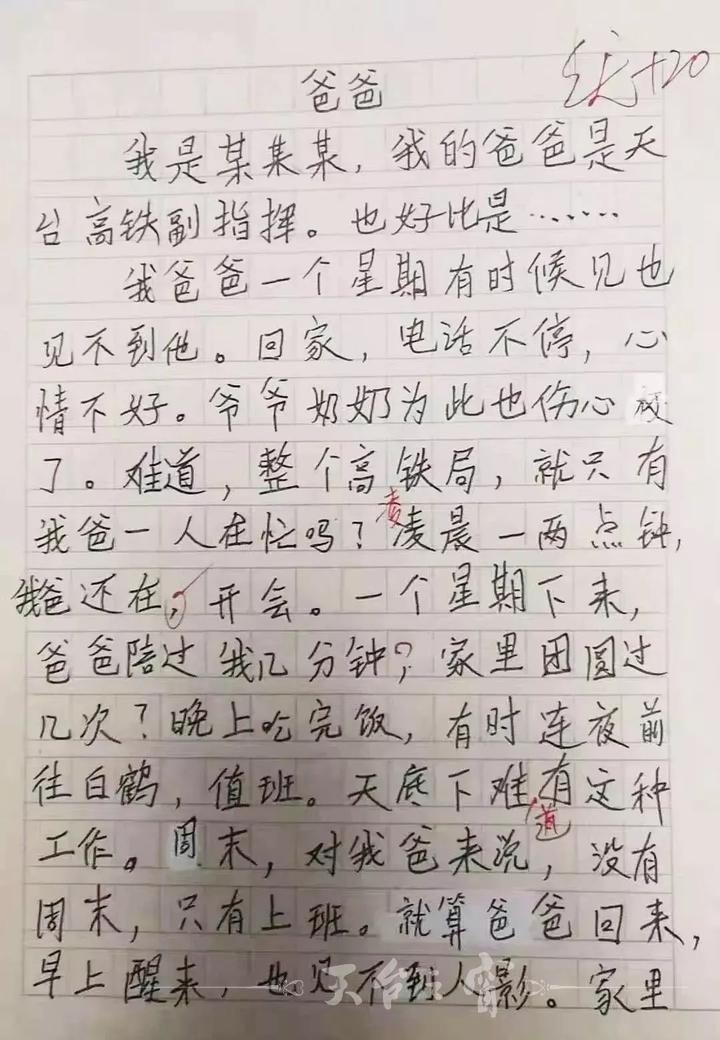 优+20
爸爸
我是某某某，我的爸爸是天
台高铁副指挥。也好比是……
我爸爸一个星期有时候见也
见不到他。回家，电话不停，心
情不好。爷爷奶奶为此也伤心
了。难道，整个高铁局，就只有
我爸一人在忙吗？凌晨一两点钟，
我爸还在，开会。一个星期下来，
爸爸陪过我几分钟？家里团圆过
几次？晚上吃完饭，有时连夜前
往白鹤，值班。天底下难有这种
道
工作。周末，对我爸来说，没有
周末，只有上班。就算爸爸回来，
早上醒来，也见不到人影。家里
天台之窗